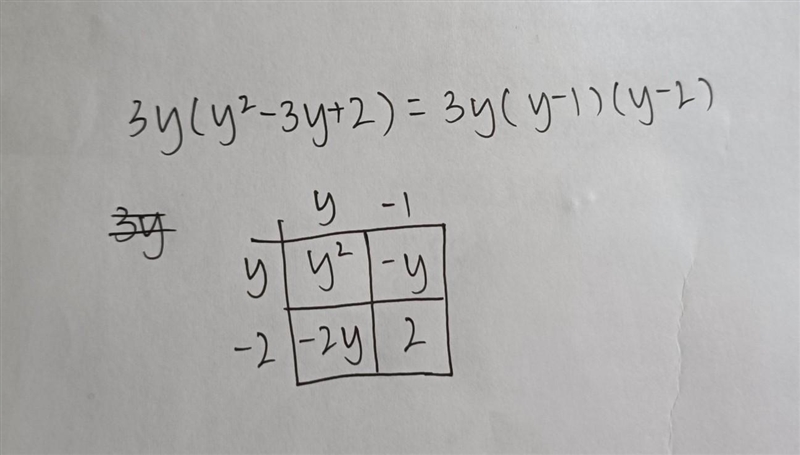 3y(y²-3y+2) = 3y(y-1)(y-2)
3y
y -1
y y² -y
-2 -2y 2